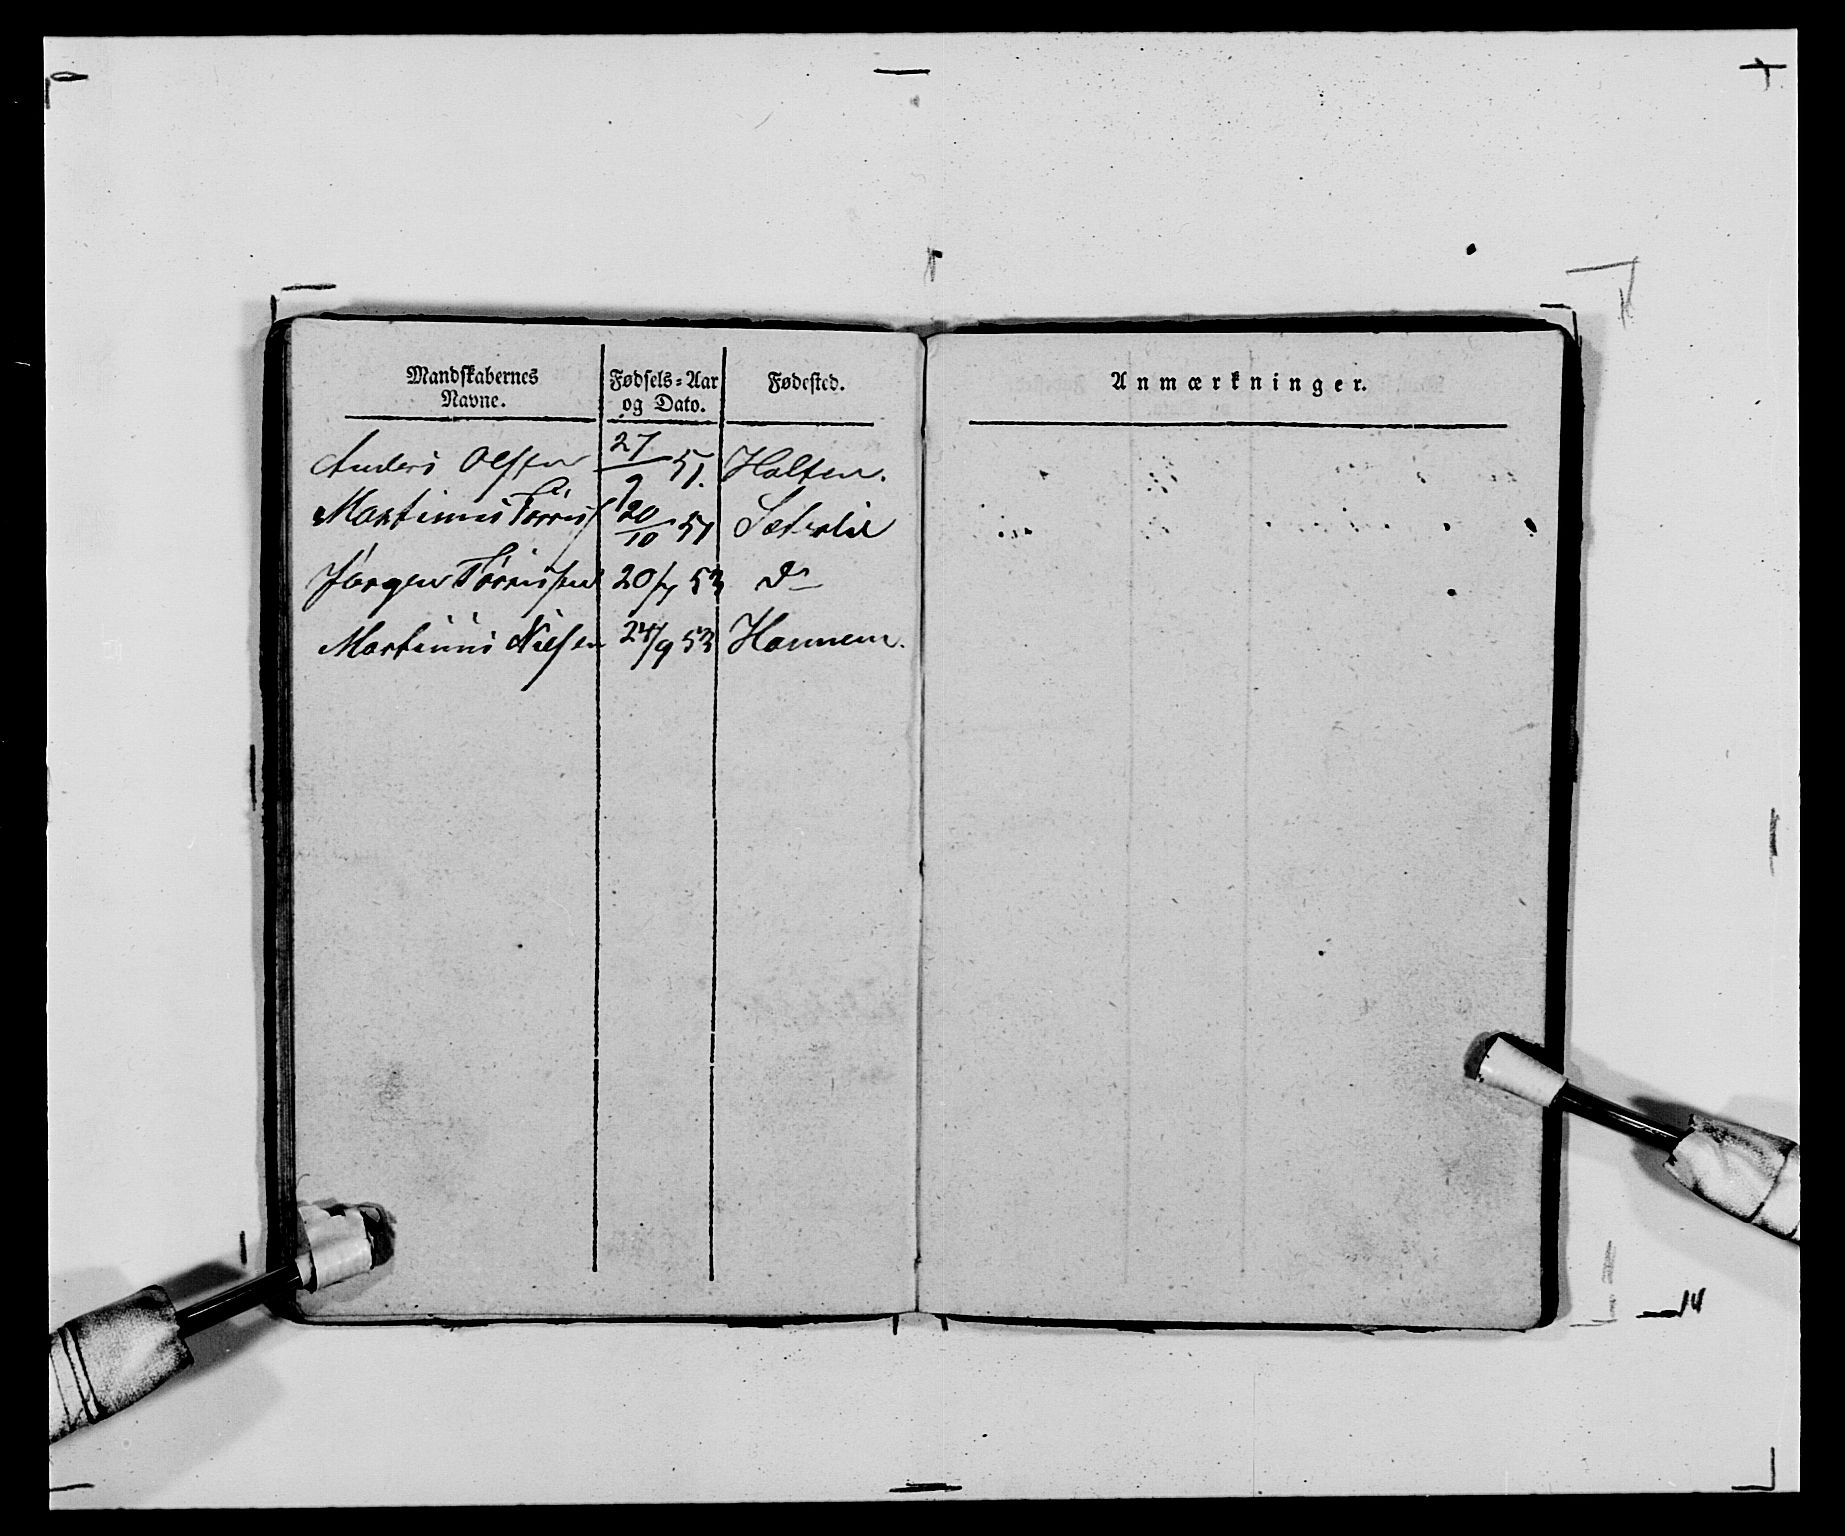 Mandskabernes Navne.
Fødsels-Aar og Dato.
Fødested.
Anders Olsen 27/9 51. Holten.
Martinus Tørris 20/10 51 Sæterlid
Jørgen Tørrissen 20/4 53 do
Martinus Nielsen 24/9 53 Hannem.
Anmærkninger.
14